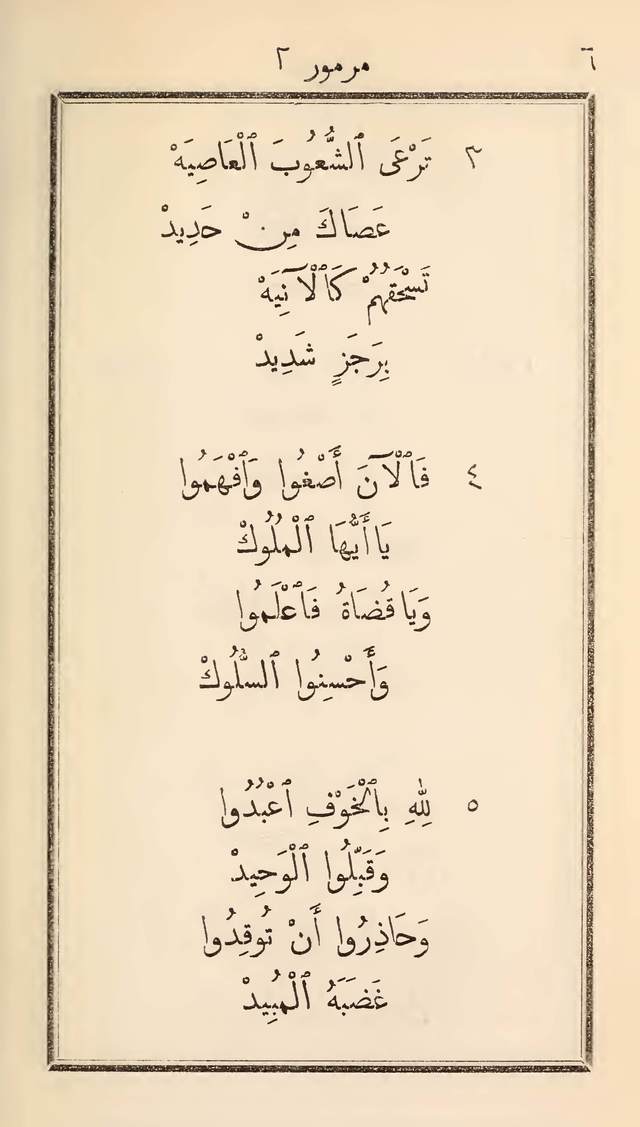 ٦ مرمور ٢
٣ تَرْعَى ٱلشُّعُوبَ ٱلْعَاصِيَهْ
عَصَاكَ مِنْ حَدِيدْ
تَسْحَقُهُمْ كَٱلْآنِيَهْ
بِرَجَزٍ شَدِيدْ
٤ فَٱلْآنَ أَصْغُوا وَٱفْهَمُوا
يَا أَيُّهَا ٱلْمُلُوكْ
وَيَا قُضَاةُ فَٱعْلَمُوا
وَأَحْسِنُوا ٱلسُّلُوكْ
٥ لِلّٰهِ بِٱلْخَوْفِ ٱعْبُدُوا
وَقَبِّلُوا ٱلْوَحِيدْ
وَحَاذِرُوا أَنْ تُوقِدُوا
غَضَبَهُ ٱلْمُبِيدْ